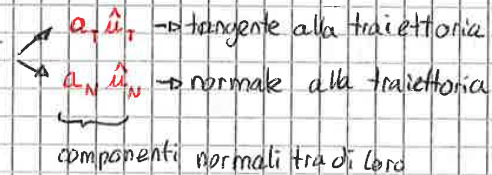 a_T û_T → tangente alla traiettoria
a_N û_N → normale alla traiettoria
componenti normali tra di loro